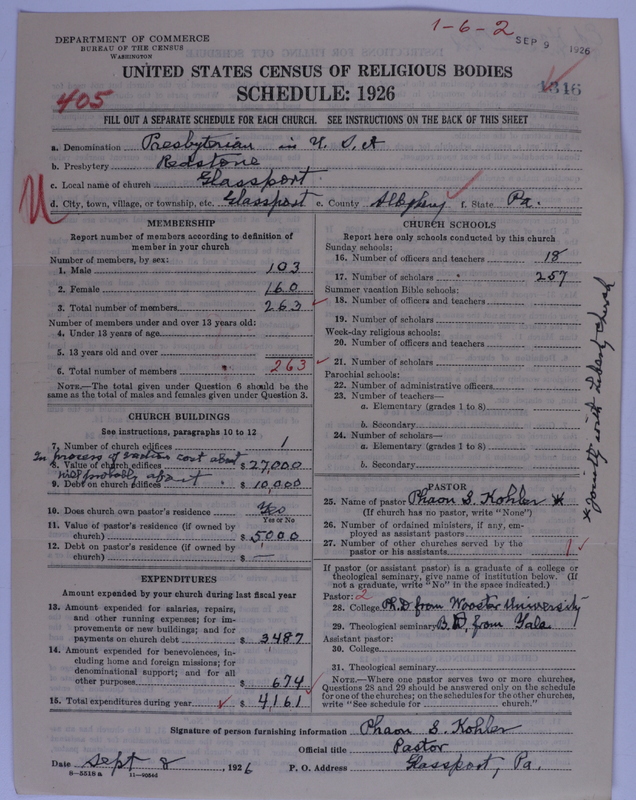 1-6-2
SEP 9 1926
DEPARTMENT OF COMMERCE
BUREAU OF THE CENSUS
WASHINGTON
UNITED STATES CENSUS OF RELIGIOUS BODIES
SCHEDULE: 1926
405
1316
FILL OUT A SEPARATE SCHEDULE FOR EACH CHURCH. SEE INSTRUCTIONS ON THE BACK OF THIS SHEET
a. Denomination Presbyterian in U. S. A
b. Presbytery Redstone
c. Local name of church Glassport
d. City, town, village, or township, etc. Glassport e. County Allegheny f. State Pa.
MEMBERSHIP
Report number of members according to definition of
member in your church
Number of members, by sex:
1. Male 103
2. Female 160
3. Total number of members 263
Number of members under and over 13 years old:
4. Under 13 years of age
5. 13 years old and over
6. Total number of members 263
NOTE.—The total given under Question 6 should be the
same as the total of males and females given under Question 3.
CHURCH BUILDINGS
See instructions, paragraphs 10 to 12
7. Number of church edifices 1
In process of erection cost about
8. Value of church edifices $27,000
will probably
9. Debt on church edifices $10,000
10. Does church own pastor's residence Yes
Yes or No
11. Value of pastor's residence (if owned by
church) $5000
12. Debt on pastor's residence (if owned by
church) $ —
EXPENDITURES
Amount expended by your church during last fiscal year
13. Amount expended for salaries, repairs,
and other running expenses; for im-
provements or new buildings; and for
payments on church debt $3487
14. Amount expended for benevolences, in-
cluding home and foreign missions; for
denominational support; and for all
other purposes $674
15. Total expenditures during year $4161
CHURCH SCHOOLS
Report here only schools conducted by this church
Sunday schools:
16. Number of officers and teachers 18
17. Number of scholars 257
Summer vacation Bible schools:
18. Number of officers and teachers
19. Number of scholars
Week-day religious schools:
20. Number of officers and teachers
21. Number of scholars
Parochial schools:
22. Number of administrative officers
23. Number of teachers—
a. Elementary (grades 1 to 8)
b. Secondary
24. Number of scholars—
a. Elementary (grades 1 to 8)
b. Secondary
PASTOR
25. Name of pastor Phaon S. Kohler *
(If church has no pastor, write "None")
26. Number of ordained ministers, if any, em-
ployed as assistant pastors
27. Number of other churches served by the
pastor or his assistants 1
If pastor (or assistant pastor) is a graduate of a college or
theological seminary, give name of institution below. (If
not a graduate, write "No" in the space indicated.)
Pastor: 2
28. College Ph.D from Wooster University
29. Theological seminary B.D, from Yale
Assistant pastor:
30. College
31. Theological seminary
NOTE.—Where one pastor serves two or more churches,
Questions 28 and 29 should be answered only on the schedule
for one of the churches; on the schedules for the other churches,
write "See schedule for church."
* Jointly with Liberty church
Signature of person furnishing information Phaon S. Kohler
Official title Pastor
Date Sept 8, 1926 P. O. Address Glassport, Pa.
8—5518 a 11—9034d